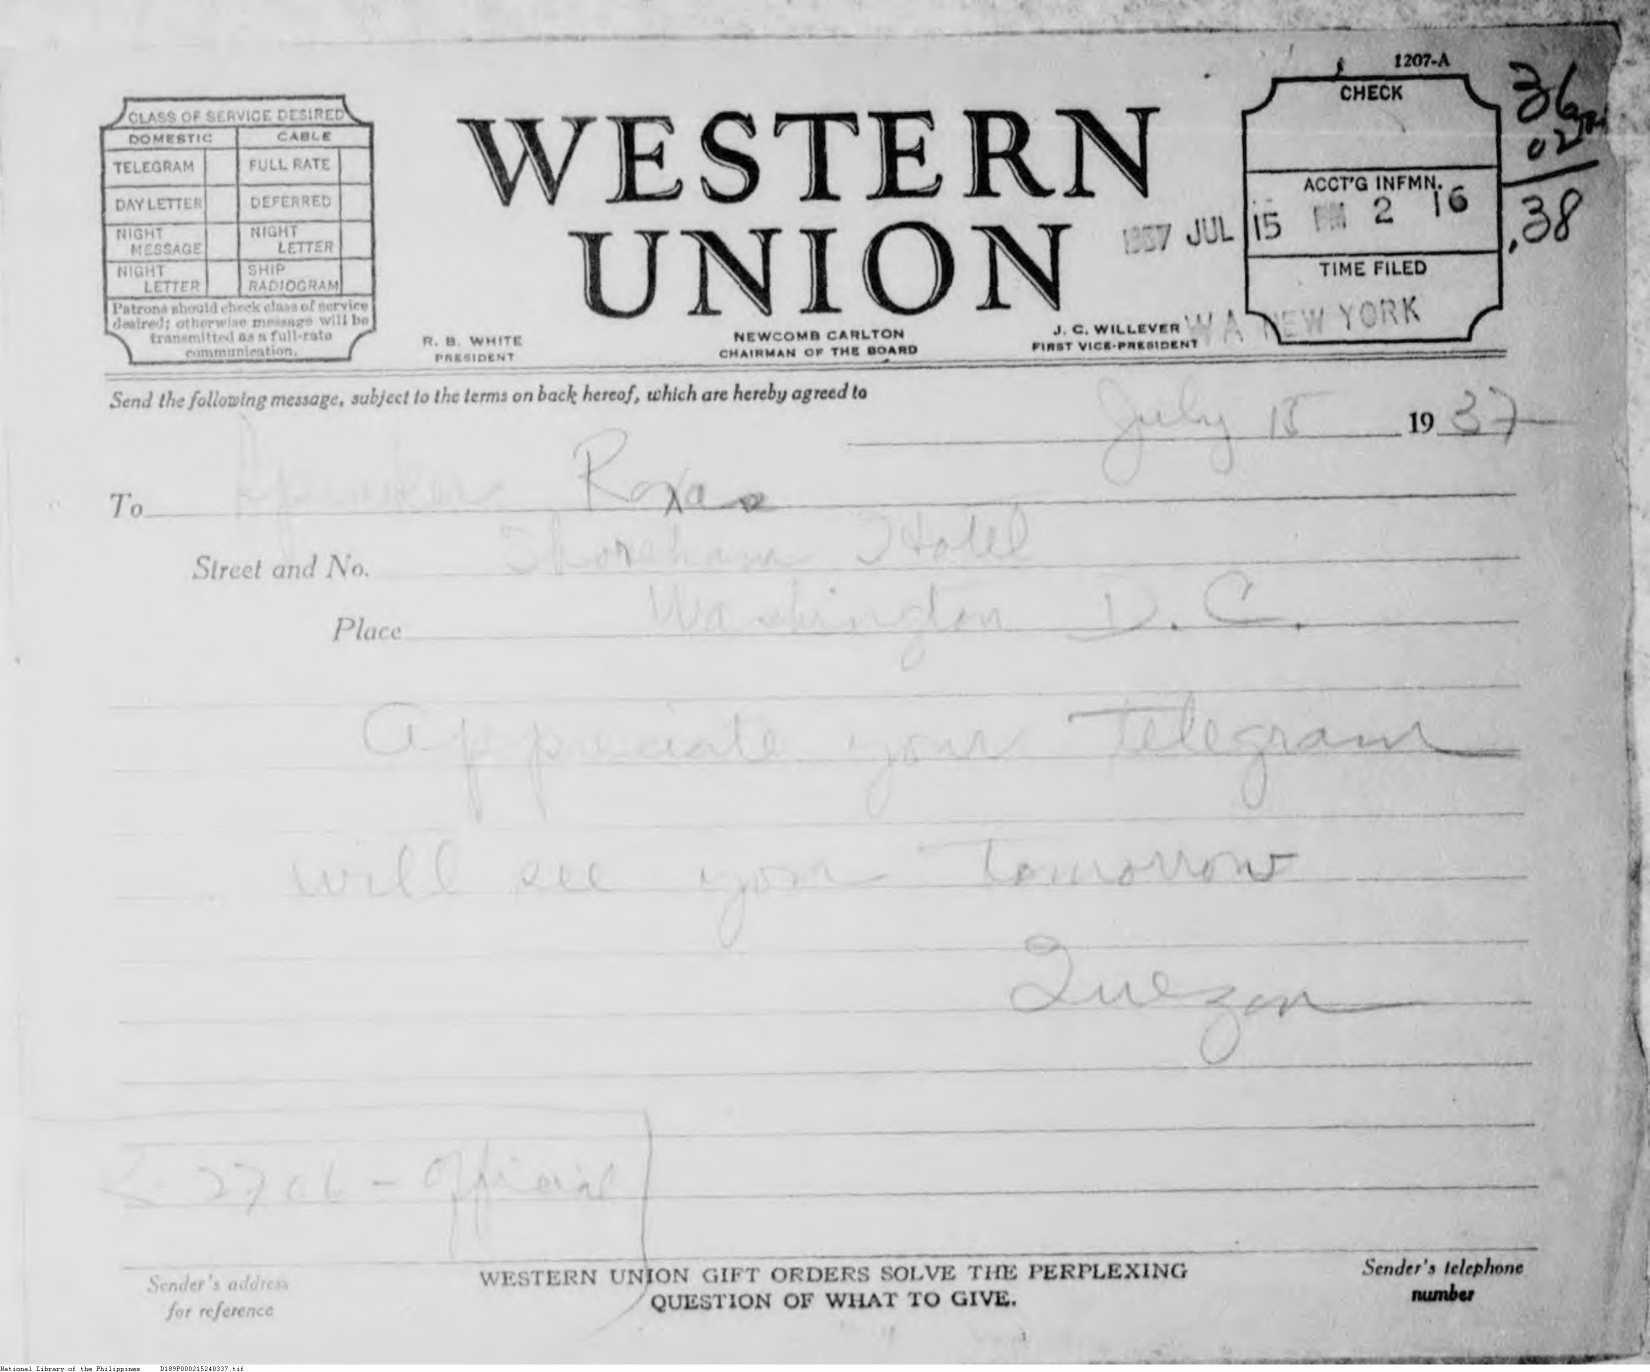 1207-A
CLASS OF SERVICE DESIRED
DOMESTIC CABLE
TELEGRAM FULL RATE
DAY LETTER DEFERRED
NIGHT MESSAGE NIGHT LETTER
NIGHT LETTER SHIP RADIOGRAM
Patrons should check class of service
desired; otherwise message will be
transmitted as a full-rate
communication.
WESTERN
UNION
R. B. WHITE
PRESIDENT
NEWCOMB CARLTON
CHAIRMAN OF THE BOARD
J. C. WILLEVER
FIRST VICE-PRESIDENT
CHECK
ACCT'G INFMN.
1937 JUL 15 PM 2 16
TIME FILED
WA NEW YORK
36
02
.38
Send the following message, subject to the terms on back hereof, which are hereby agreed to
July 15 1937
To Speaker Roxas
Street and No. Shoreham Hotel
Place Washington D. C.
Appreciate your telegram
will see you tomorrow
Quezon
2706 - Official
Sender's address
for reference
WESTERN UNION GIFT ORDERS SOLVE THE PERPLEXING
QUESTION OF WHAT TO GIVE.
Sender's telephone
number
National Library of the Philippines D189P000215240337.tif